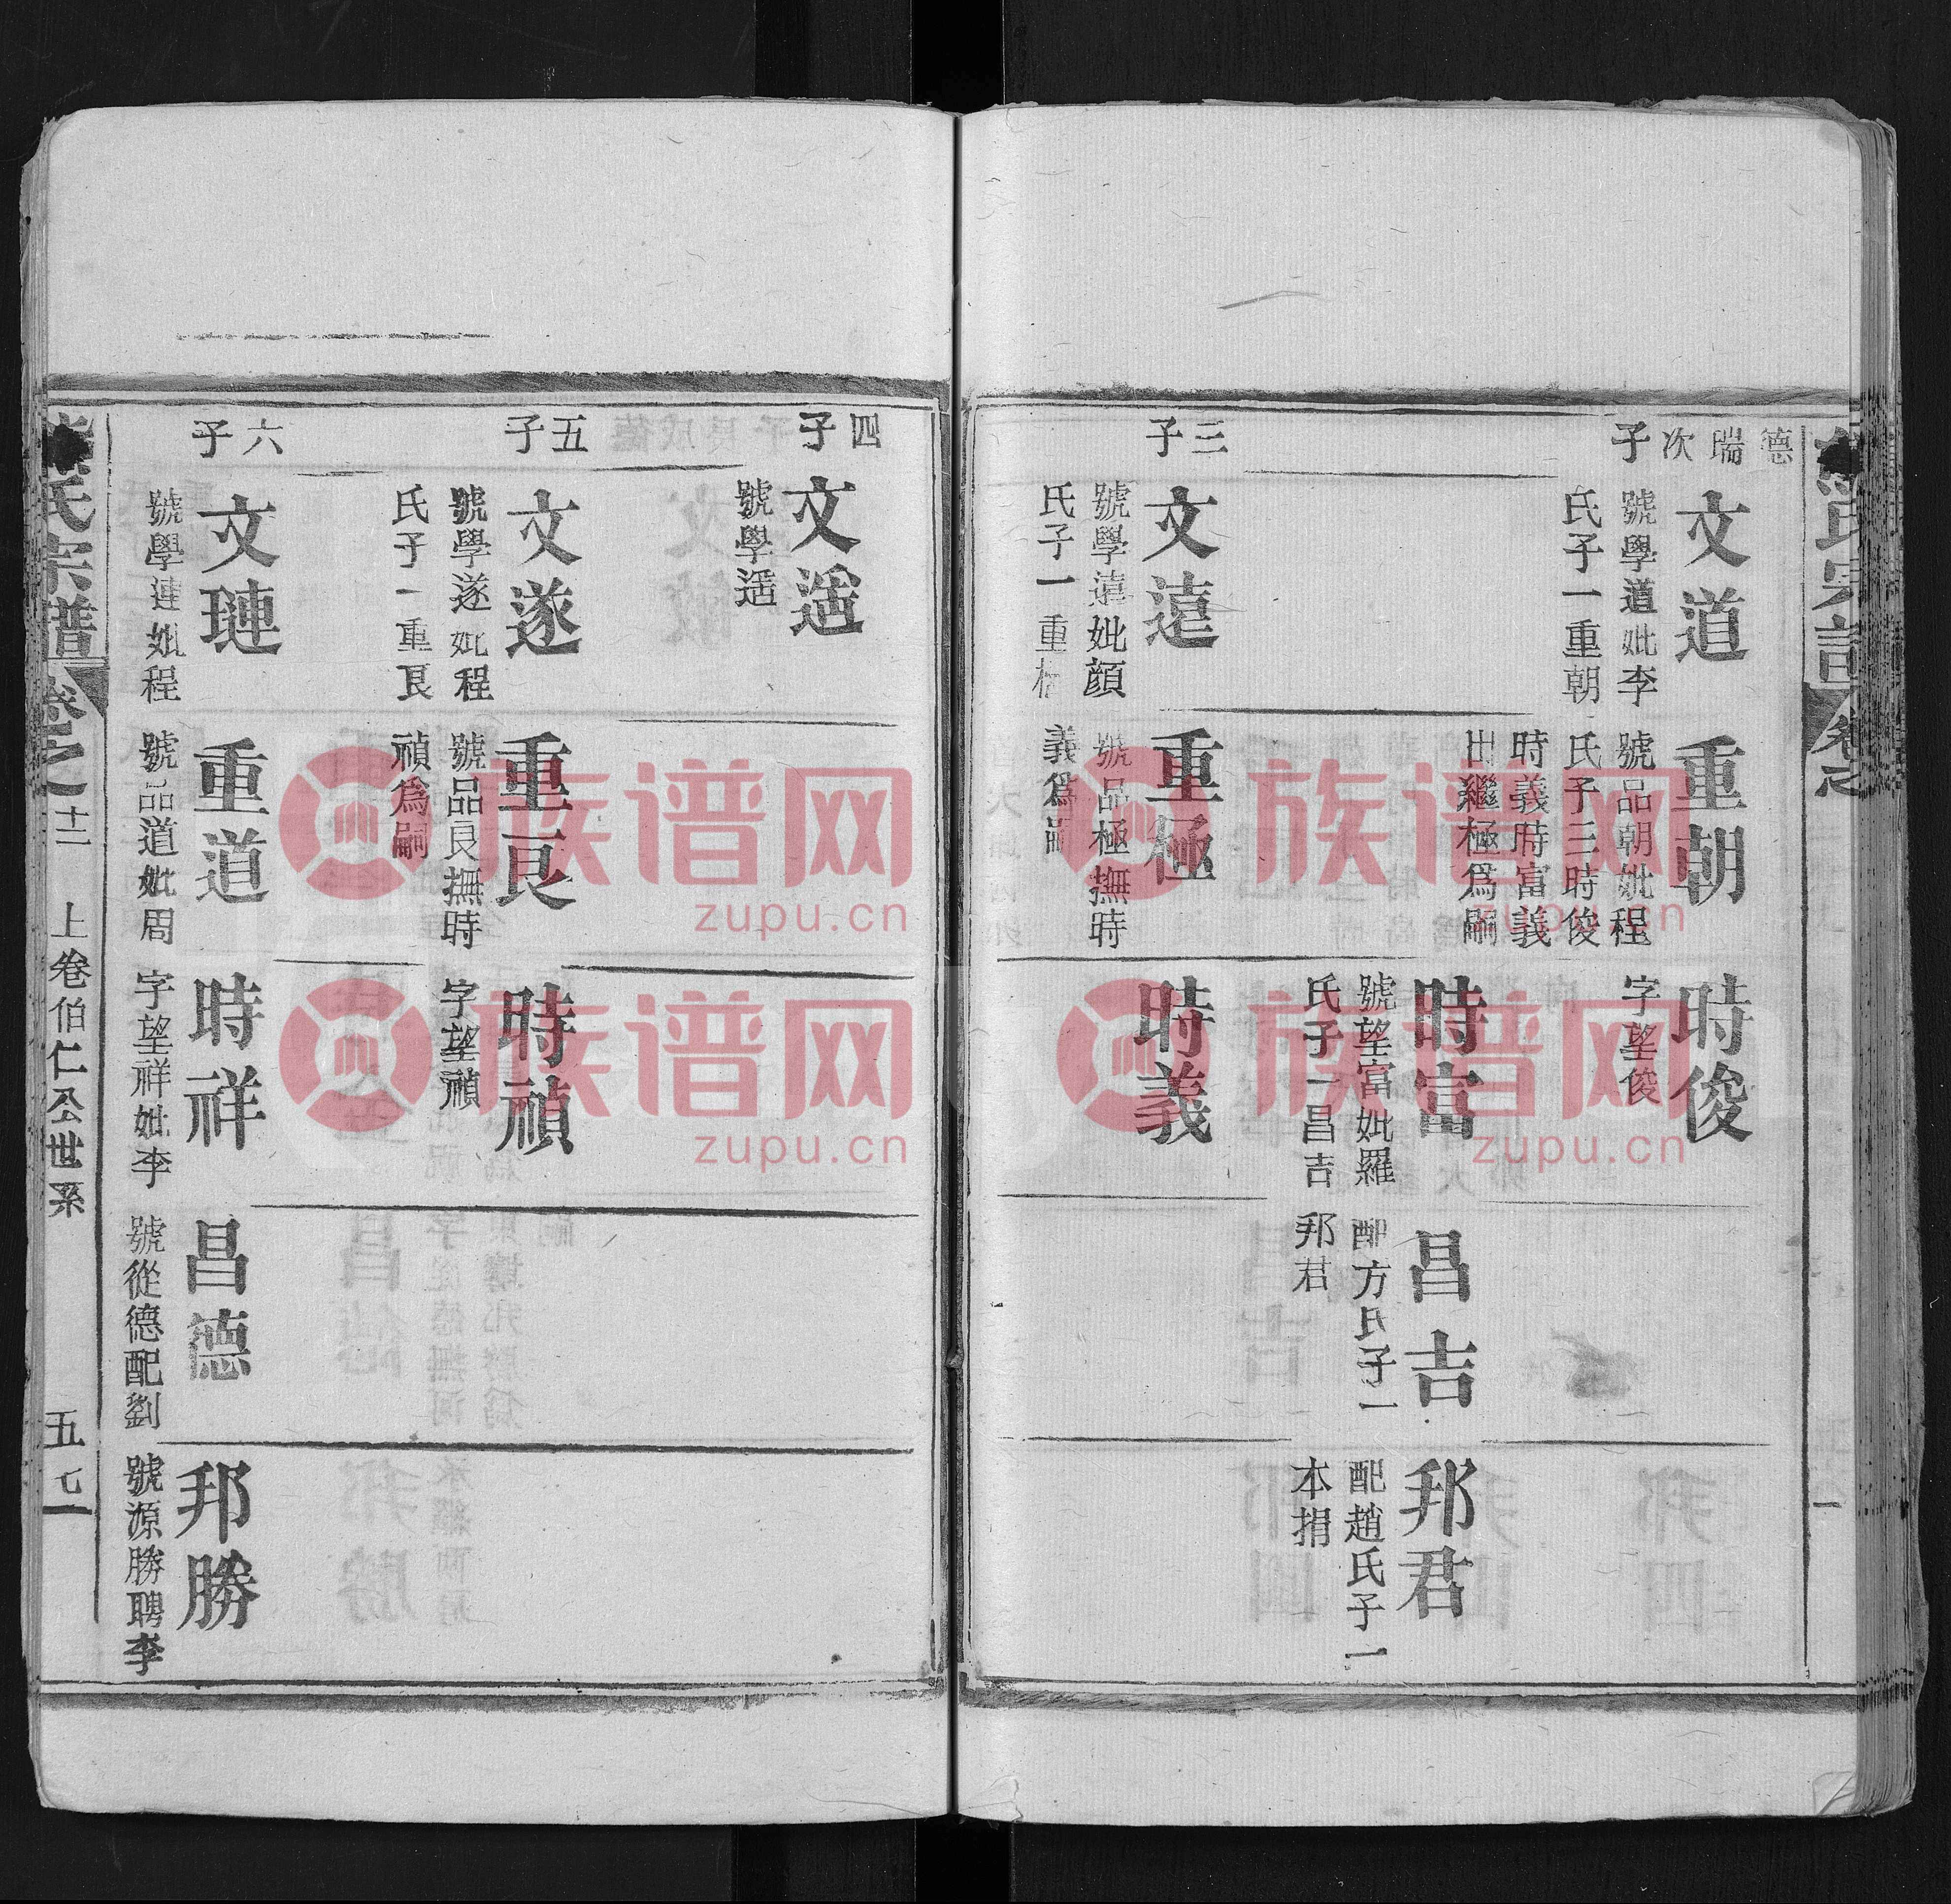 氏宗譜
卷之
德瑞次子
文道
號學道妣李
氏子一重朝
重朝
號品朝妣程
氏子三時俊
時義時富義
出繼極爲嗣
時俊
字望俊
時富
號望富妣羅
氏子一昌吉
昌吉
配方氏子一
邦君
邦君
配趙氏子一
本捐
三子
文遠
號學遠妣顏
氏子一重極
重極
號品極撫時
義爲嗣
時義
四子
文遥
號學遥
五子
文遂
號學遂妣程
氏子一重良
重良
號品良撫時
禎爲嗣
時禎
字望禎
六子
文璉
號學連妣程
重道
號品道妣周
時祥
字望祥妣李
昌德
號從德配劉
邦勝
號源勝聘李
氏宗譜
卷之十二
上卷伯仁公世系
五七
族谱网
zupu.cn
族谱网
zupu.cn
族谱网
zupu.cn
族谱网
zupu.cn